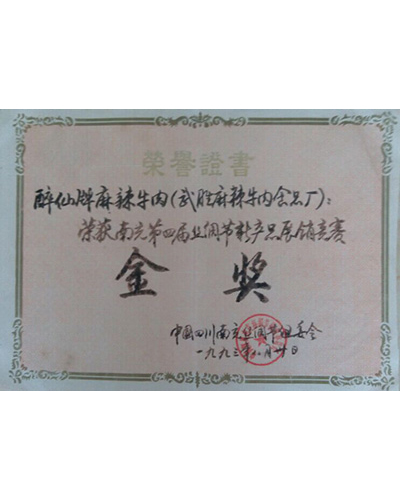 榮譽證書
醉仙牌麻辣牛肉(武胜麻辣牛肉食品厂):
荣获南充第四届丝绸节新产品展销竞赛
金奖
中国四川南充丝绸节组委会
一九九三年八月卅日